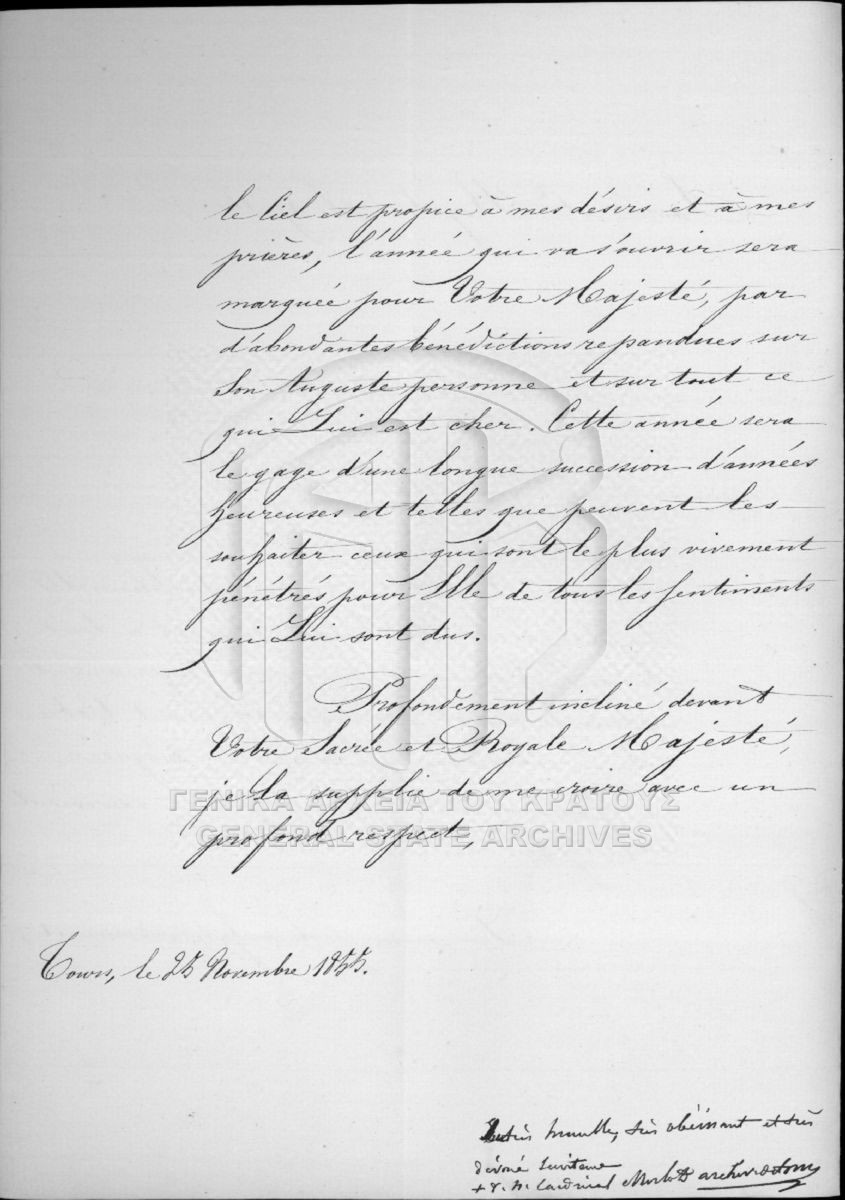 le Ciel est propice à mes désirs et à mes
prières, l'année qui va s'ouvrir sera
marquée pour Votre Majesté, par
d'abondantes bénédictions repandues sur
Son Auguste personne et sur tout ce
qui Lui est cher. Cette année sera
le gage d'une longue succession d'années
heureuses et telles que peuvent les
souhaiter ceux qui sont le plus vivement
pénétrés pour Elle de tous les sentiments
qui Lui sont dus.
Profondement incliné devant
Votre Sacrée et Royale Majesté,
je La supplie de me croire avec un
ΓΕΝΙΚΑ ΑΡΧΕΙΑ ΤΟΥ ΚΡΑΤΟΥΣ
profond respect,
GENERAL STATE ARCHIVES
Tours, le 25 Novembre 1855.
très humble, très obéissant et très
dévoué Serviteur
+ f. n. Cardinal Morlot arch. de Tours